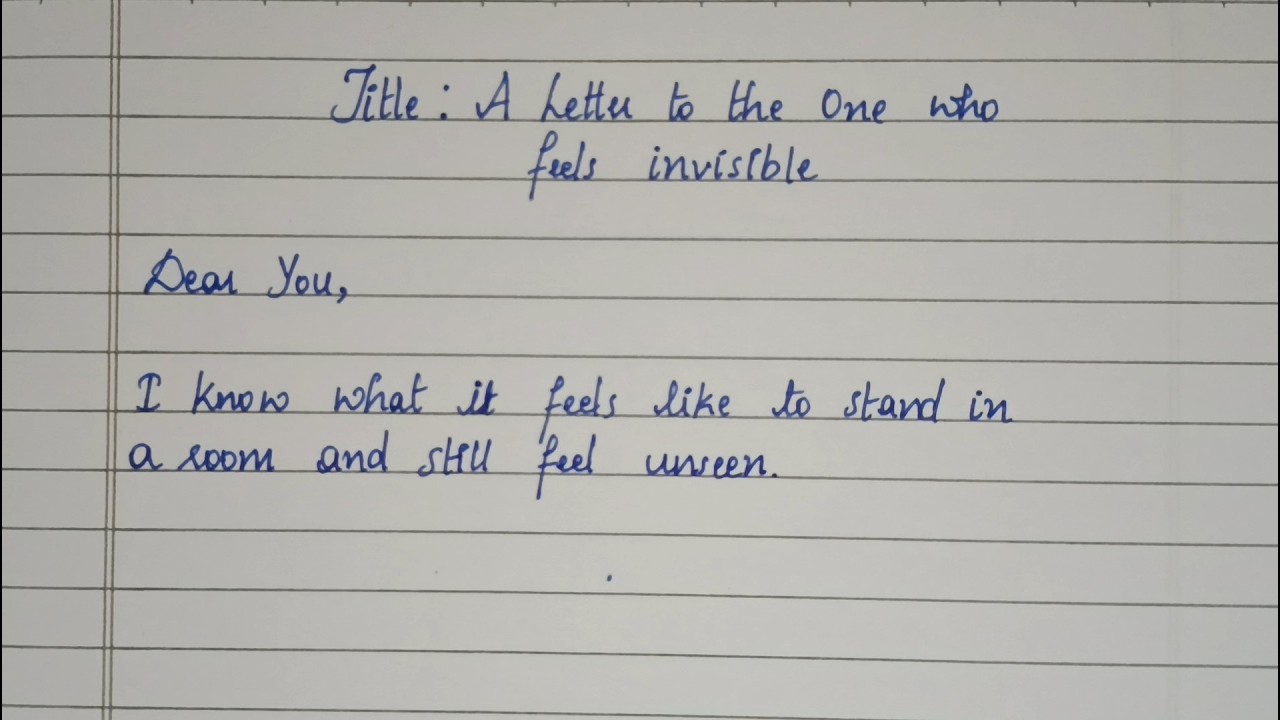 Title : A Letter to the One who
feels invisible
Dear You,
I know what it feels like to stand in
a room and still feel unseen.